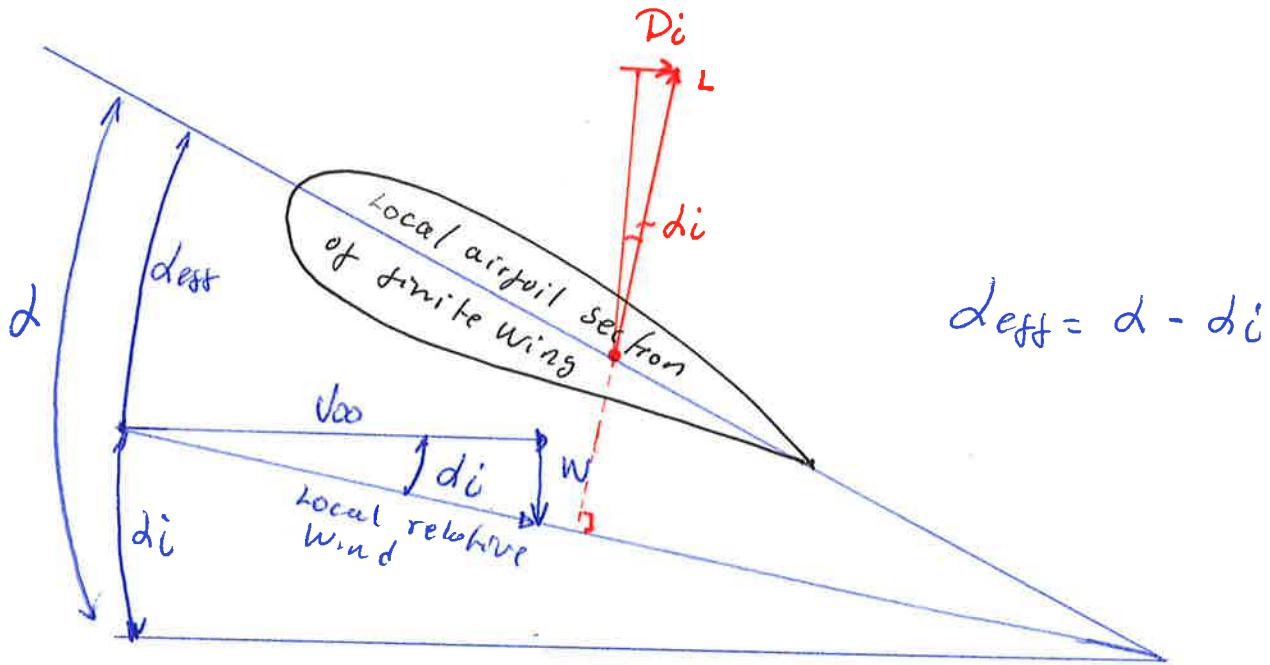 Di
L
αi
Local airfoil section
of finite wing
αeff
α
αeff = α - αi
V∞
αi
W
Local relative
Wind
αi